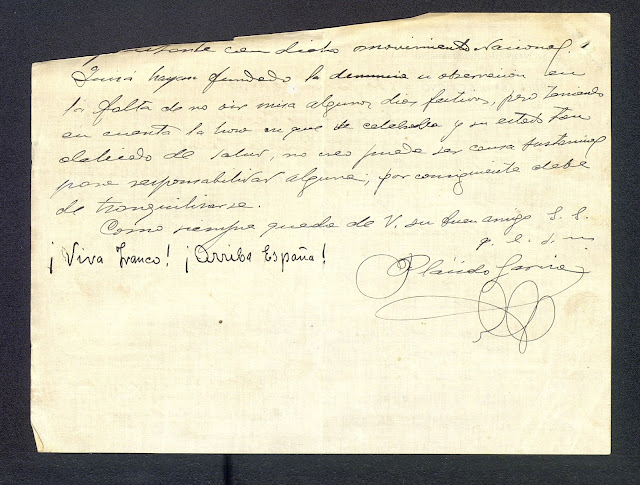 con dicho movimiento Nacional.
Quizá hayan fundado la denuncia u observación en
la falta de no oir misa algunos dias festivos, pero tomando
en cuenta la hora en que se celebraba y su estado tan
delicado de salud, no creo puede ser causa
para responsabilidad alguna, por consiguiente debe
de tranquilizarse.
Como siempre queda de V. su buen amigo S. S.
q. e. s. m.
¡Viva Franco! ¡Arriba España!
Plácido Garcia